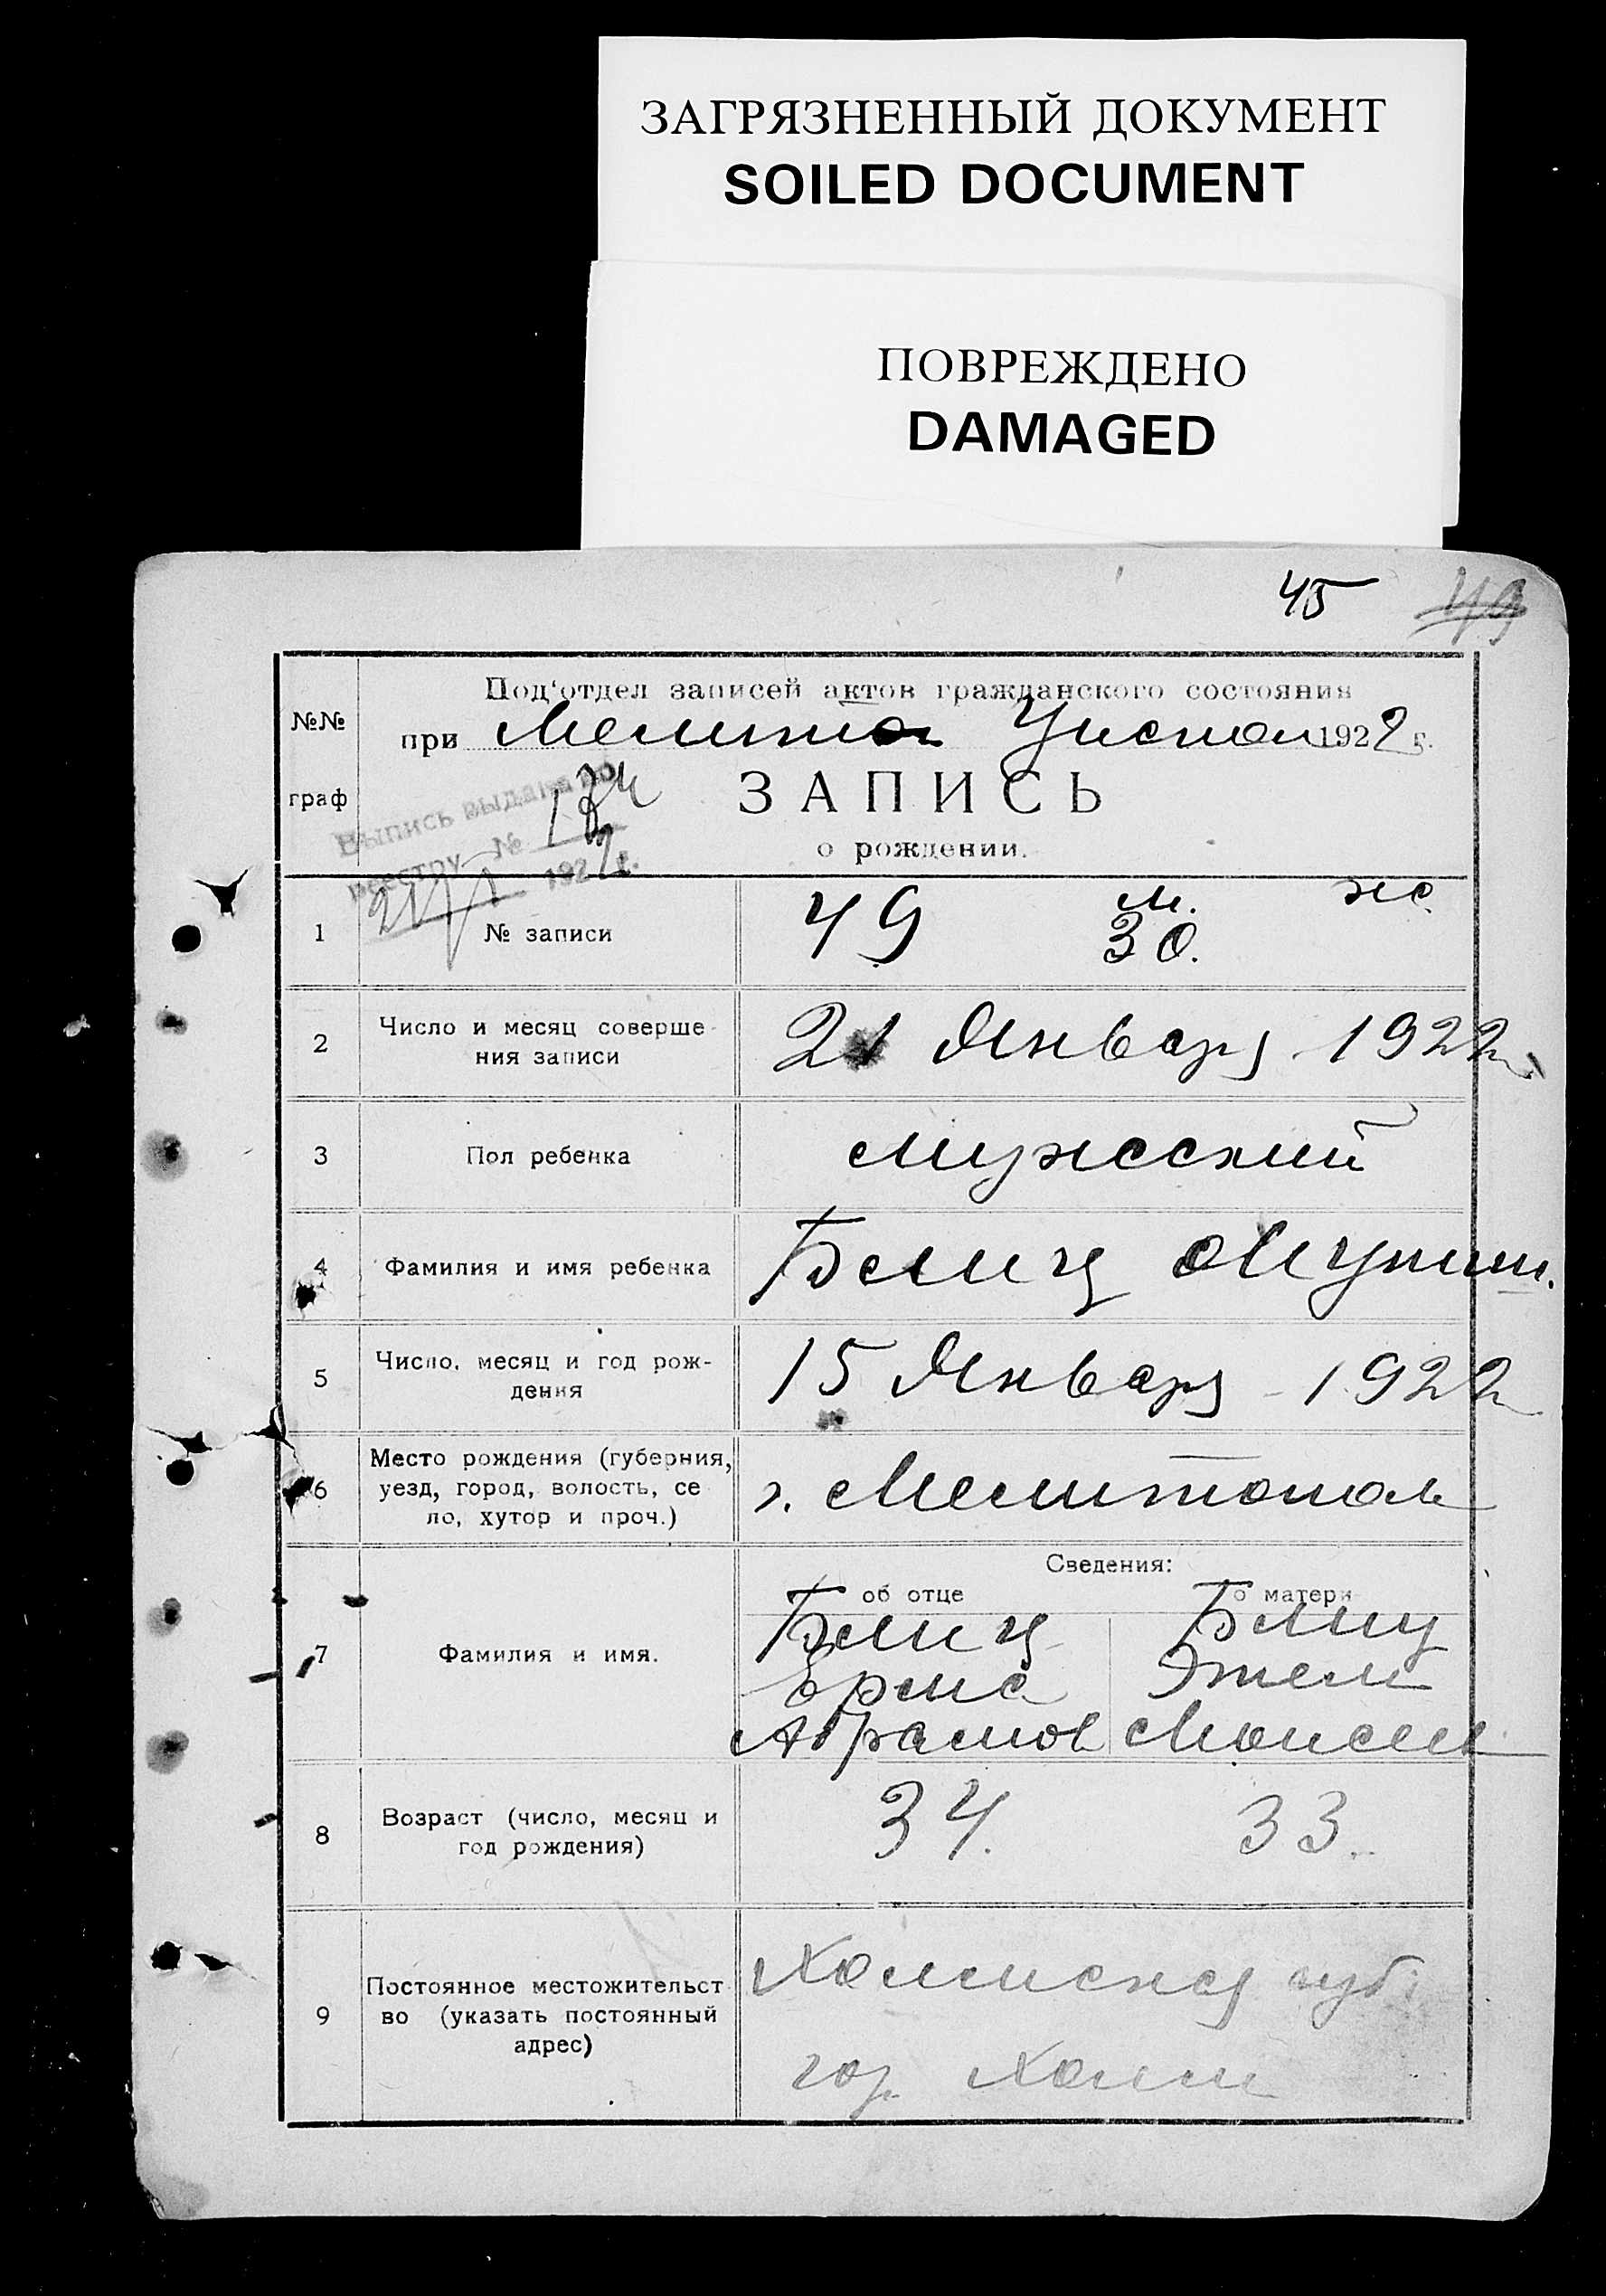 ЗАГРЯЗНЕННЫЙ ДОКУМЕНТ
SOILED DOCUMENT
ПОВРЕЖДЕНО
DAMAGED
45 49
№№ граф
Под‘отдел записей актов гражданского состояния
при Мелитоп Уисполк 1922 г.
ЗАПИСЬ
о рождении.
Выпись выдана по
реестру №
21/1 1922 г.
1 № записи 49 м. 30. ж.
2 Число и месяц соверше-
ния записи 21 Января 1922
3 Пол ребенка мужской
4 Фамилия и имя ребенка Блиц
5 Число, месяц и год рож-
дения 15 Января 1922
6 Место рождения (губерния,
уезд, город, волость, се
ло, хутор и проч.) г. Мелитополь
Сведения:
об отце о матери
7 Фамилия и имя.
Блиц Блиц
Этель
Абрамов Моисеев
8 Возраст (число, месяц и
год рождения) 34. 33.
9 Постоянное местожительст
во (указать постоянный
адрес)
Холмская губ.
гор. Холм